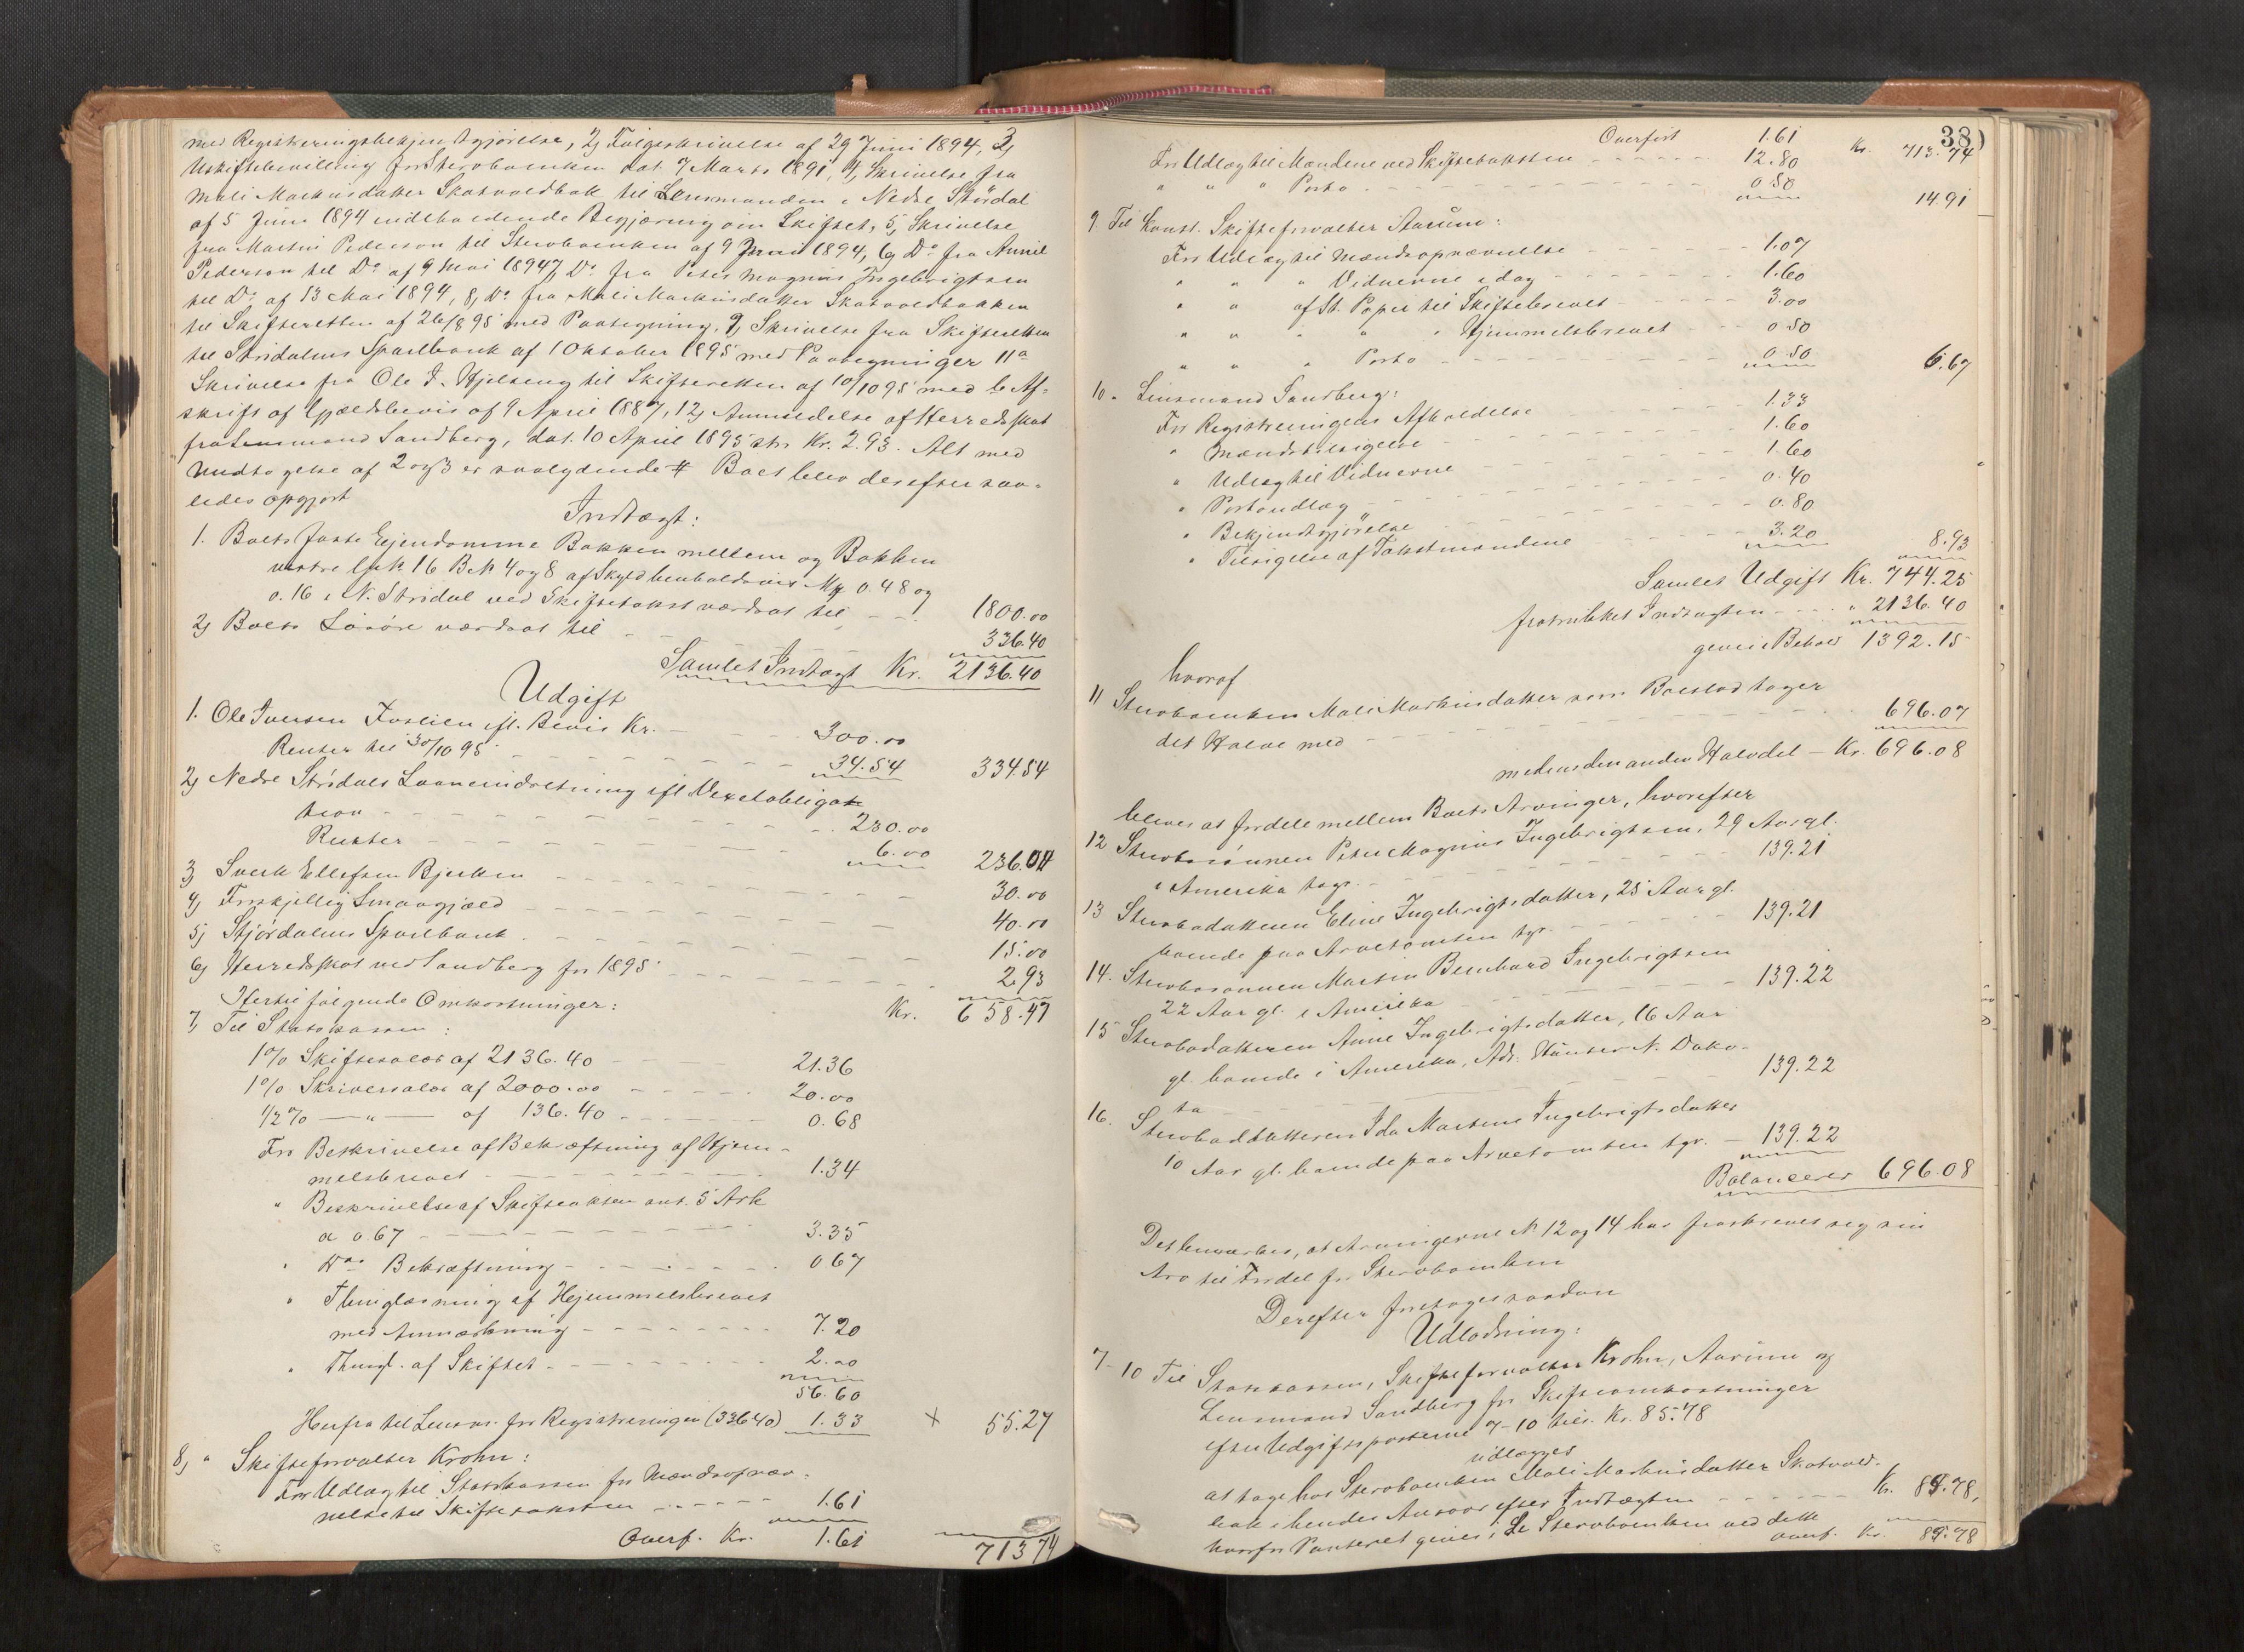 med Registreringsbekjendtgjørelse, 2, Følgeskrivelse af 29 Juni 1894, 3,
Uskiftebevilling for Sterboenken dat. 7 Marts 1891, 4, Skrivelse fra
Mali Markusdatter Skatvoldbak til Lensmanden i Nedre Stördal
af 5 Juni 1894 indeholdende Begjæring om Skiftet, 5, Skrivelse
fra Martin Pederson til Sterboenken af 9 Juni 1894, 6, Do fra Annie
Pederson til Do af 9 Mai 1894, 7, Do fra Peter Magnus Ingebrigtsen
til Do af 13 Mai 1894, 8, Do fra Mali Markusdatter Skatvoldbakken
til Skifteretten af 26/8 95 med Paategning, 9, Skrivelse fra Skifteretten
til Strdalens Sparebank af 1 Oktober 1895 med Paategninger 11 a
Skrivelse fra Ole I. Hjelseng til Skifteretten af 10/10 95 med b Af-
skrift af Gjældsbevis af 9 April 1887, 12, Anmeldelse af Herredsskat
fra Lensmand Sandberg, dat. 10 April 1895 str. Kr. 2.93. Alt med
Undtagelse af 2 og 3 er saalydende # Boet blev derefter saa-
ledes opgjort
Indtægt:
1. Boets faste Ejendomme Bakken mellem og Bakken
vestre G№ 16 B№ 4 og 8 af Skyld henholdsvis Mk 0.48 og
0.16 i N. Strdal ved Skiftetakst værdsat til - - 1800.00
2, Boets Løsøre værdsat til - - 336.40
Samlet Indtægt Kr. 2136.40
Udgift
1. Ole Iversen Fuslien ifl. Bevis Kr. - - 300.00
Renter til 30/10 95 - - 34.54 334.54
2, Nedre Strdals Laaneindretning ifl. Vexelobliga-
tion - - 230.00
Renter - - 6.00 236.00
3, Sverk Ellefsen Bjerken - - 30.00
4, Forskjellig Smaagjæld - - 40.00
5, Stjørdalens Sparebank - - 15.00
6, Herredsskat ved Sandberg for 1895 - - 2.93
Hertil følgende Omkostninger: Kr. 658.47
7, Til Statskassen:
1% Skiftesalær af 2136.40 - - 21.36
1% Skriversalær af 2000.00 - - 20.00
1/2% - " - af 136.40 - - 0.68
For Beskrivelse af Bekræftning af Hjem-
melsbrevet - - 1.34
" Beskrivelse af Skifteakten ant. 5 Ark
a 0.67 - - 3.35
" Ds Bekræftning - - 0.67
" Thinglæsning af Hjemmelsbrevet
med Anmærkning - - 7.20
" Thingl. af Skiftet - - 2.00
56.60
Herfra til Lensm. for Registreringen (336.40) 1.33 x 55.27
8, " Skifteforvalter Krohn:
For Udlæg til Statskassen for Mændsopnæv-
nelse til Skiftetaksten - - 1.61
Overf. Kr. 1.61 713 74
38)
Overført 1.61 Kr. 713.74
For Udlæg til Mændene ved Skiftetaksten - - 12.80
" " " Porto - - 0.50 14.91
9 Til Konst. Skifteforvalter Aarum:
For Udlæg til Mændsopnævnelse - - 1.07
" " " Vidnerne i dag - - 1.60
" " af St. Papir til Skiftebrevet - - 3.00
" " " " " Hjemmelsbrevet - - 0.50
" " " Porto - - 0.50 6.67
10 " Lensmand Sandberg:
For Registreringens Afholdelse - - 1.33
" Mændstilsigelse - - 1.60
" Udlæg til Vidnerne - - 1.60
" Portoudlæg - - 0.40
" Bekjendtgjørelse - - 0.80
" Tilsigelse af Takstmændene - - 3.20 8.93
Samlet Udgift Kr. 744.25
fratrukket Indtægten - - " 2136.40
giver i Behold 1392.15
hvoraf
11 Sterboenken Mali Markusdatter som Boeslod tager
det Halve med - - 696.07
medens den anden Halvdel - Kr. 696.08
bliver at fordele mellem Boets Arvinger, hvorefter
12 Sterbosønnen Peter Magnus Ingebrigtsen, 29 Aar gl.
i Amerika tager - - 139.21
13 Sterbodatteren Eline Ingebrigtsdatter, 25 Aar gl.
boende paa Arvetomten tgr. - - 139.21
14. Sterbosønnen Martin Bernhard Ingebrigtsen
22 Aar gl. i Amerika - - 139.22
15 Sterbodatteren Anne Ingebrigtsdatter, 16 Aar
gl. boende i Amerika, Adr. Hunter N. Dako-
ta - - 139.22
16. Sterbodatteren Ida Martine Ingebrigtsdatter
10 Aar gl. boende paa Arvetomten tgr. - 139.22
Balancerer 696.08
Det bemærkes, at Arvingerne № 12 og 14 har fraskrevet sig sin
Arv til Fordel for Sterboenken
Derefter foretoges saadan
Udlodning:
7-10 Til Statskassen, Skifteforvalter Krohn, Aarum og
Lensmand Sandberg for Skifteomkostninger
efter Udgiftsposterne 7-10 tils. Kr. 85.78
udlægges
at tage hos Sterboenken Mali Markusdatter Skatvold-
bak i hendes Ansvar efter Indtægten - - Kr. 85.78,
hvorfor Panteret gives i Sterboenken ved dette
overf. Kr. 85.78